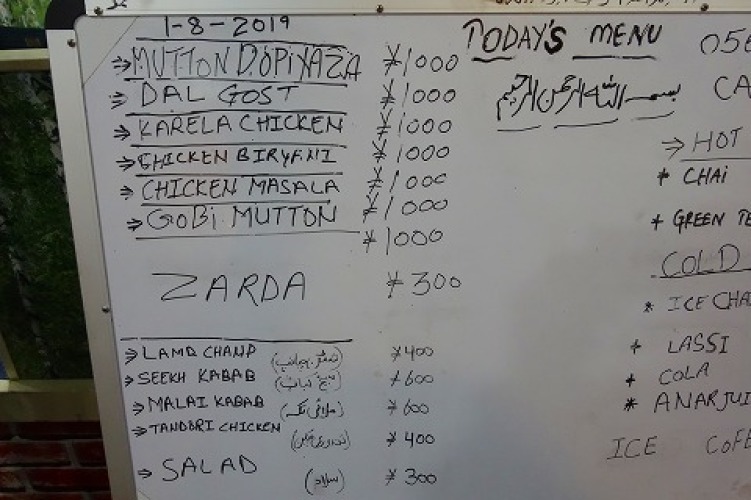 1-8-2019
TODAY'S MENU
056
⇒ MUTTON DOPIYAZA ¥1000
بسم الله الرحمن الرحيم
CA
⇒ DAL GOST ¥1000
⇒ KARELA CHICKEN ¥1000
⇒ HOT
⇒ CHICKEN BIRYANI ¥1000
* CHAi
⇒ CHICKEN MASALA ¥1000
⇒ GOBi MUTTON ¥1000
+ GREEN TE
¥1000
COLD
ZARDA ¥300
* ICE CHA
⇒ LAMB CHANP ¥400
+ LASSI
⇒ SEEKH KABAB ¥600
+ COLA
⇒ MALAI KABAB (ملائی تکہ) ¥600
* ANAR JUI
⇒ TANDORI CHICKEN ¥400
ICE COFE
⇒ SALAD (سلاد) ¥300